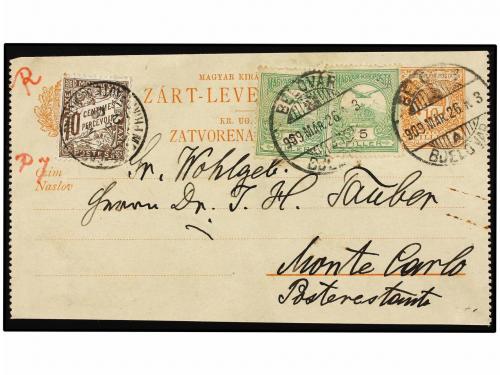 MAGYAR KIRÁ
ZÁRT-LEVE
KR. UG.
ZATVORENA
R
P
Czim
Naslov
10
CENTIMES
À PERCEVOIR
MAGYAR KIR. POSTA
5
FILLÉR
BELOVÁR
909 MÁR. 26. 3
BJELOVAR
909 MÁR. 26. 3
BJELOVAR
Sr. Wohlgeb.
Herrn Dr. J. H. Tauber
Monte Carlo
Posterestante